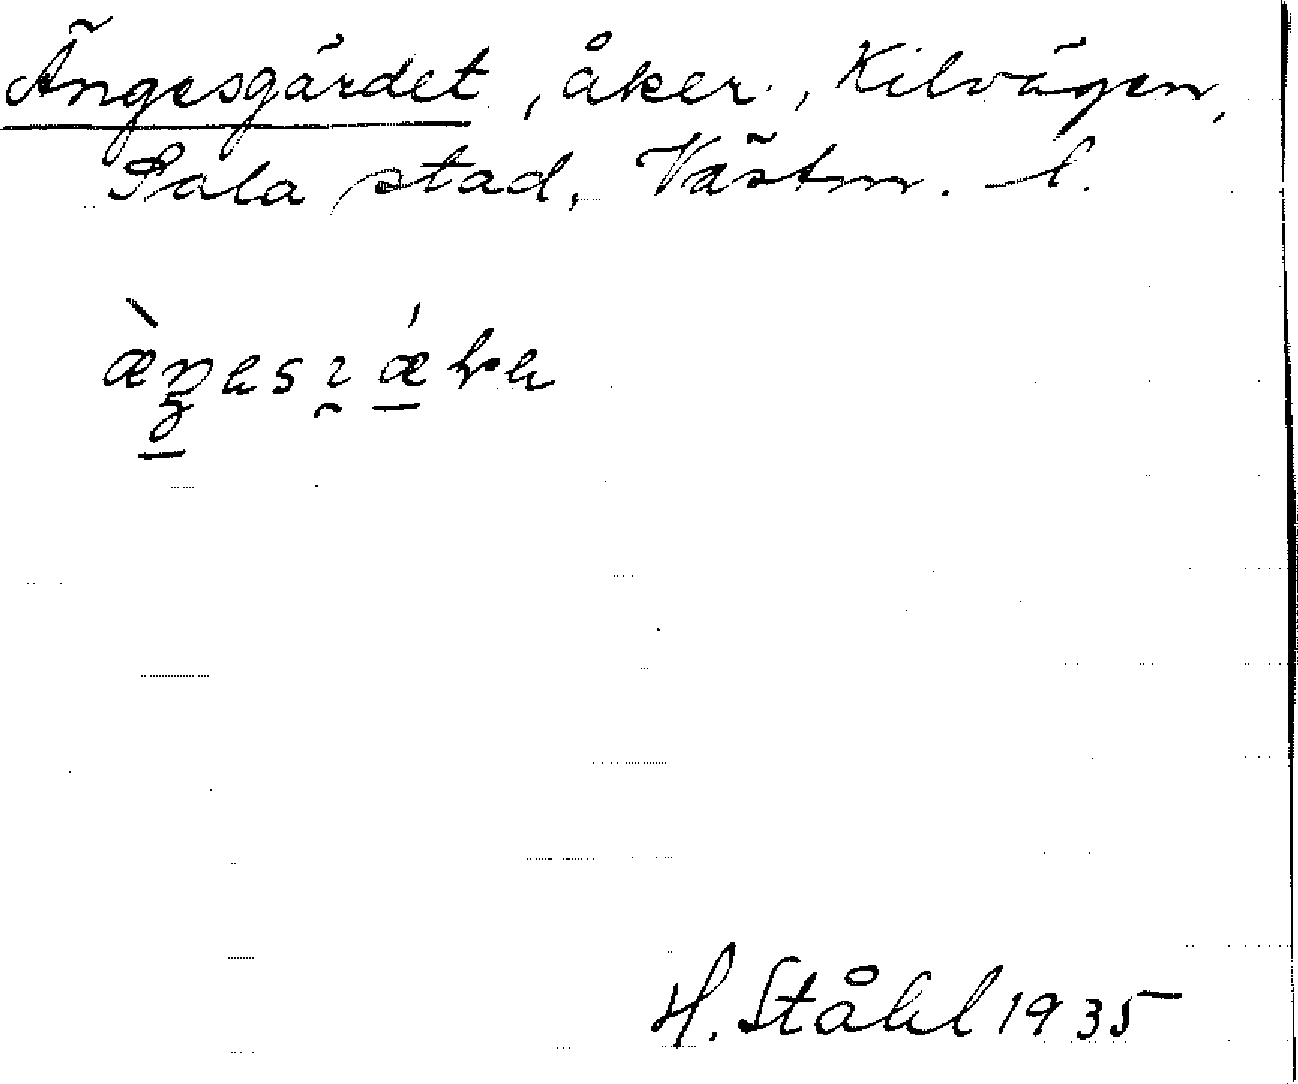 Ängesgärdet, åker, Kilvägen,
Sala stad, Västm. l.
H. Ståhl 1935